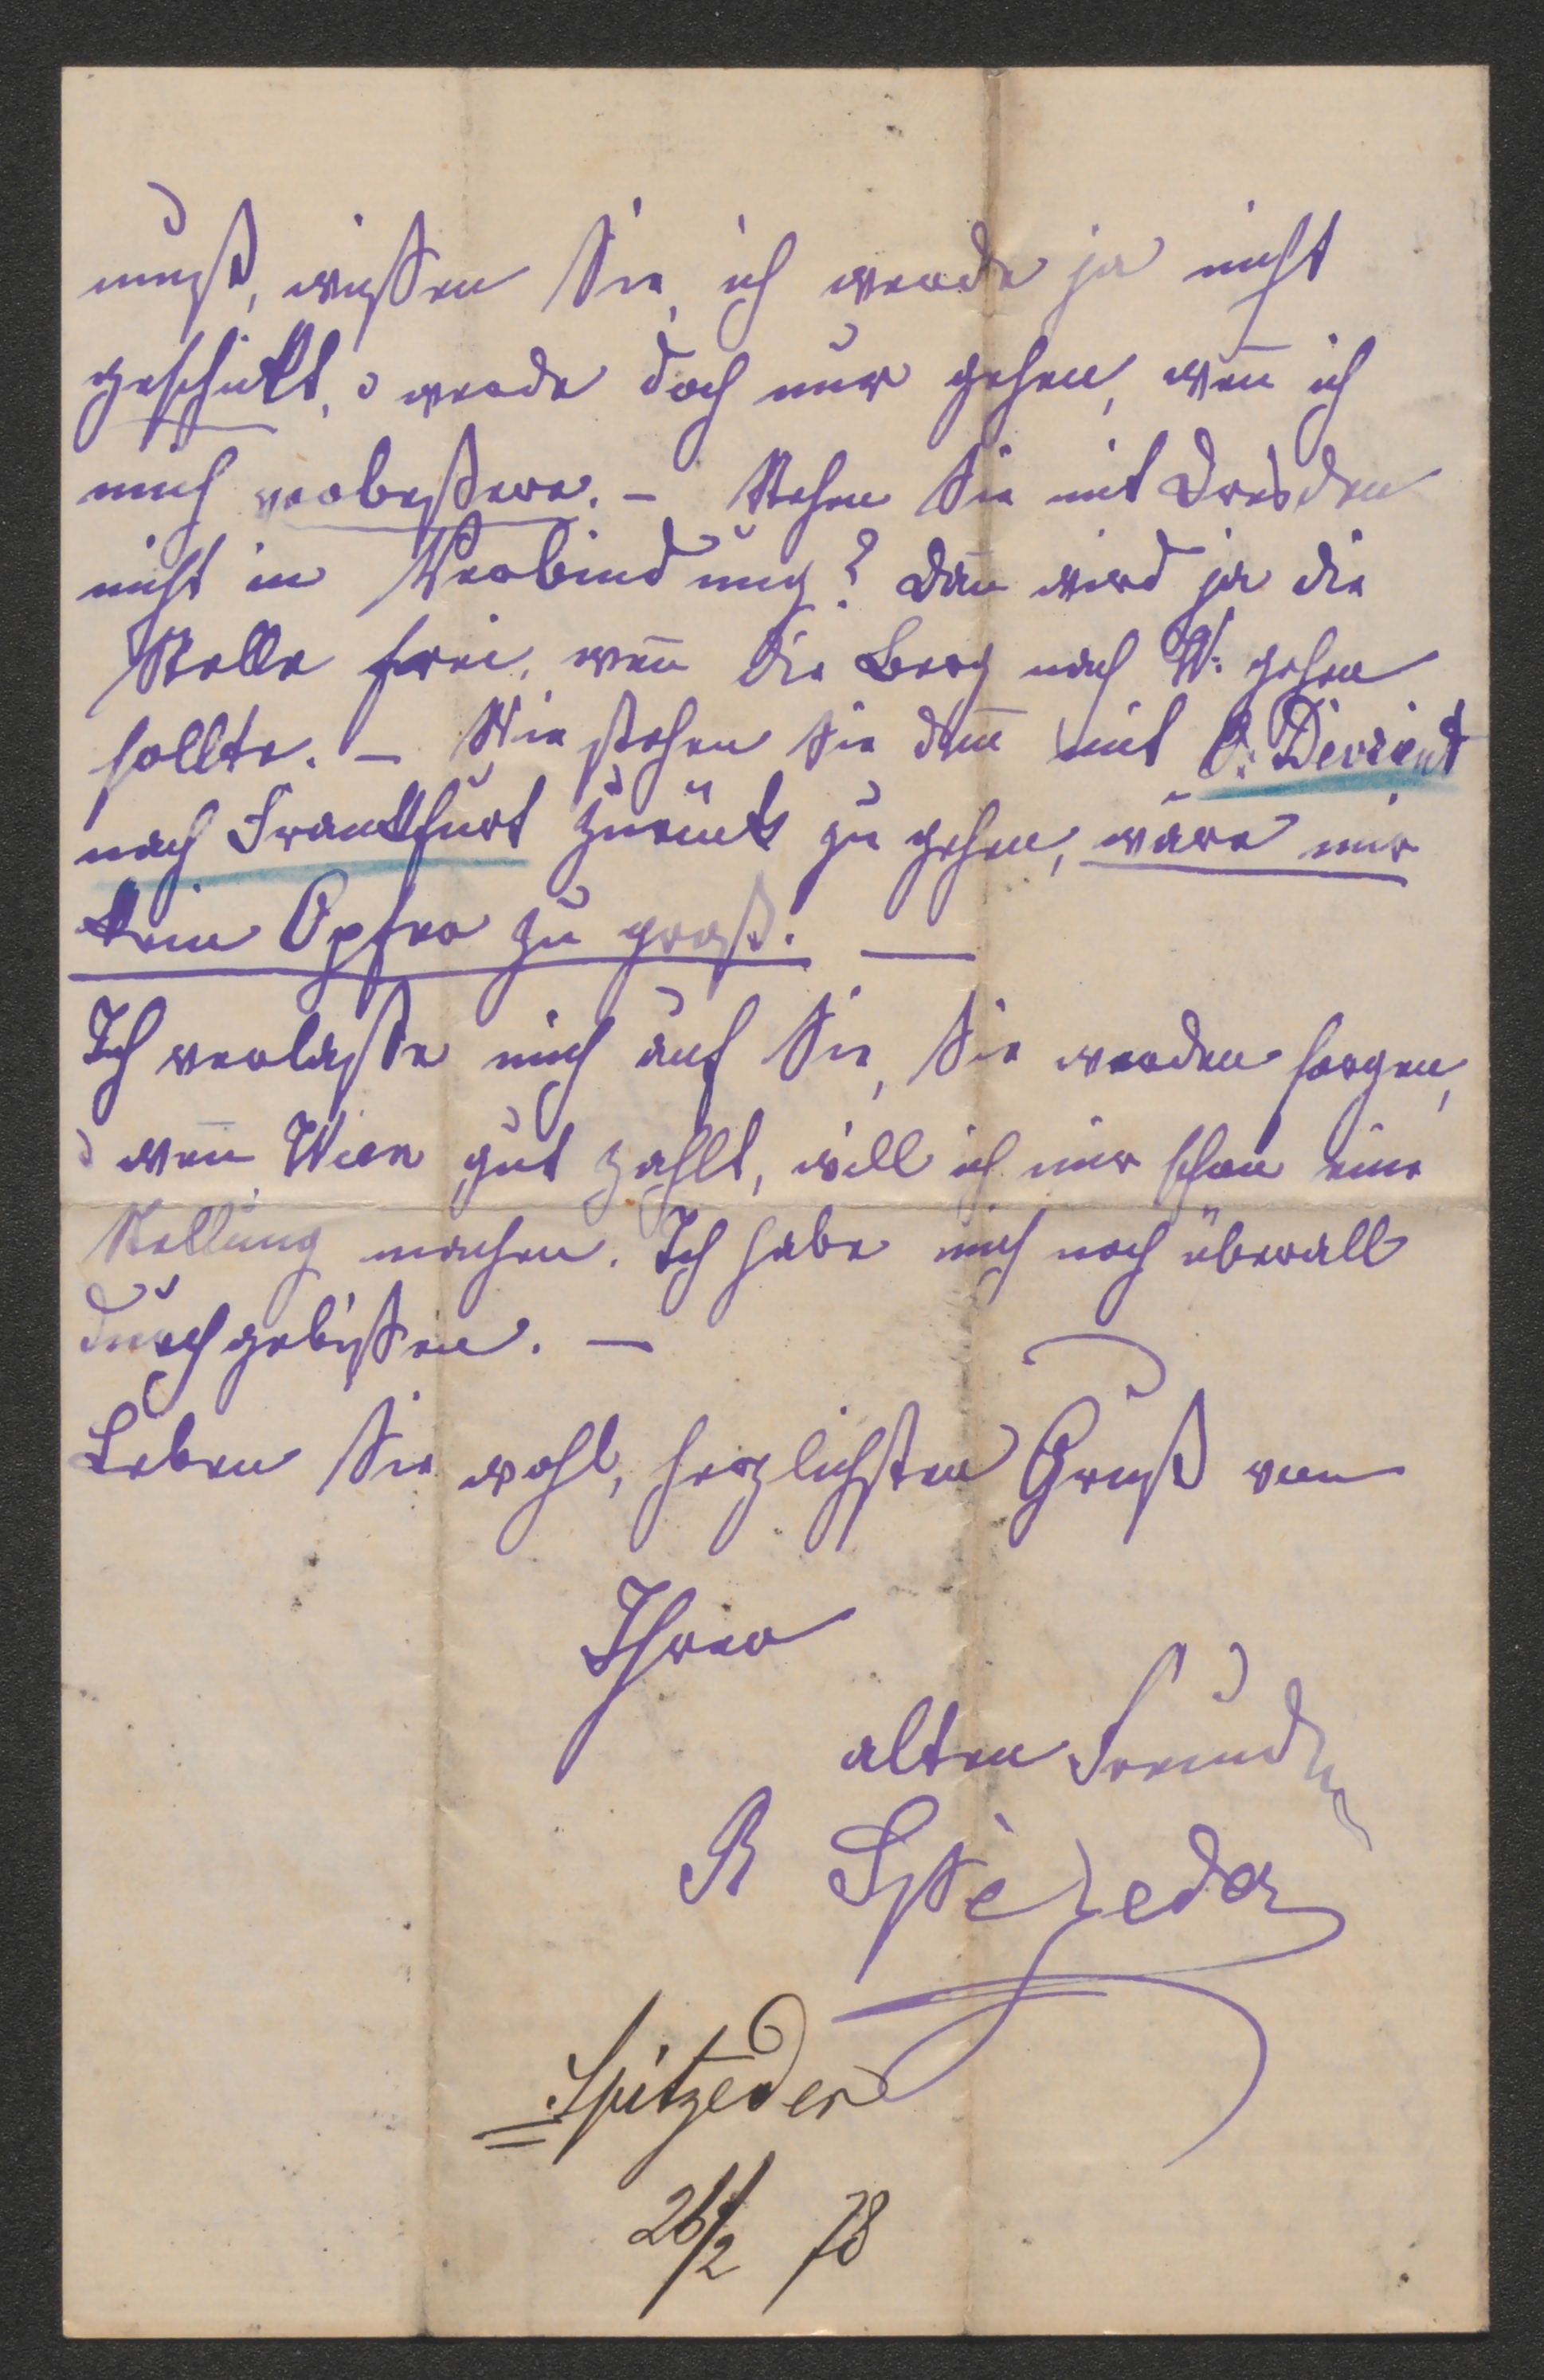 muß, wißen Sie, ich werde ja nicht
geschickt, u werde doch nur gehen, weñ ich
mich verbeßere. – Stehen Sie mit Dresden
nicht in Verbindung? Dañ wird ja die
Stelle frei, weñ die Berg nach W. gehen
sollte. – Wie stehen Sie deñ mit O. Devrient
nach Frankfurt zurück zu gehen, wäre mir
kein Opfer zu groß. —
Ich verlaße mich auf Sie, Sie werden sorgen,
u weñ Wien gut zahlt, will ich mir schon eine
Stellung machen. Ich habe mich noch überall
durchgebißen. —
Leben Sie wohl, herzlichsten Gruß von
Ihrer
alten Freundin
R Spizeder
Spitzeder
26/2 78